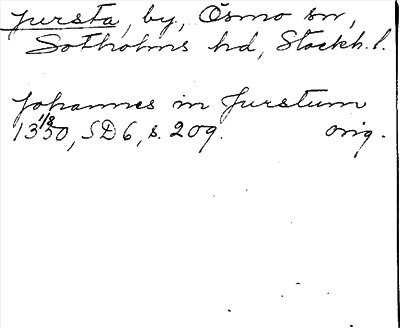 Jursta, by, Ösmo sn,
Sotholms hd, Stockh. l.
Johannes in Jurstum
1350 1/8, SD 6, s. 209. orig.